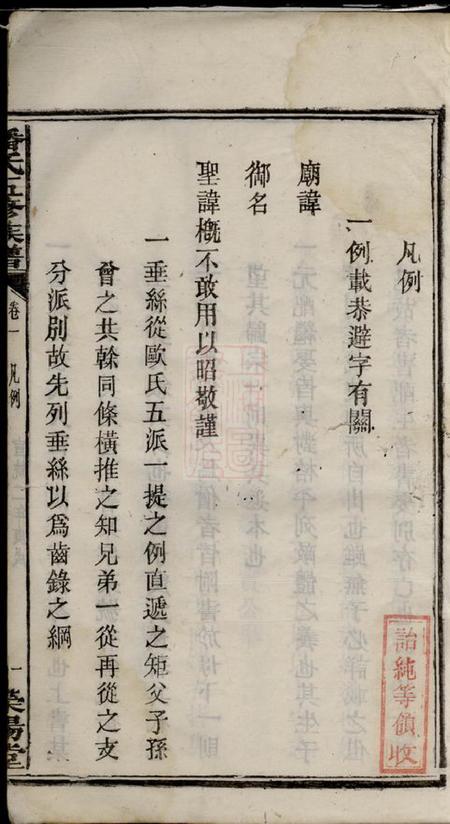 凡例
一例載恭避字有關
廟諱
御名
聖諱槪不敢用以昭敬謹
一垂絲從歐氏五派一提之例直遞之矩父子孫
曾之共榦同條橫推之知兄弟一從再從之支
分派別故先列垂絲以爲齒錄之綱
潘氏五修族譜
卷一
凡例
一
滎陽堂
詒純等領收